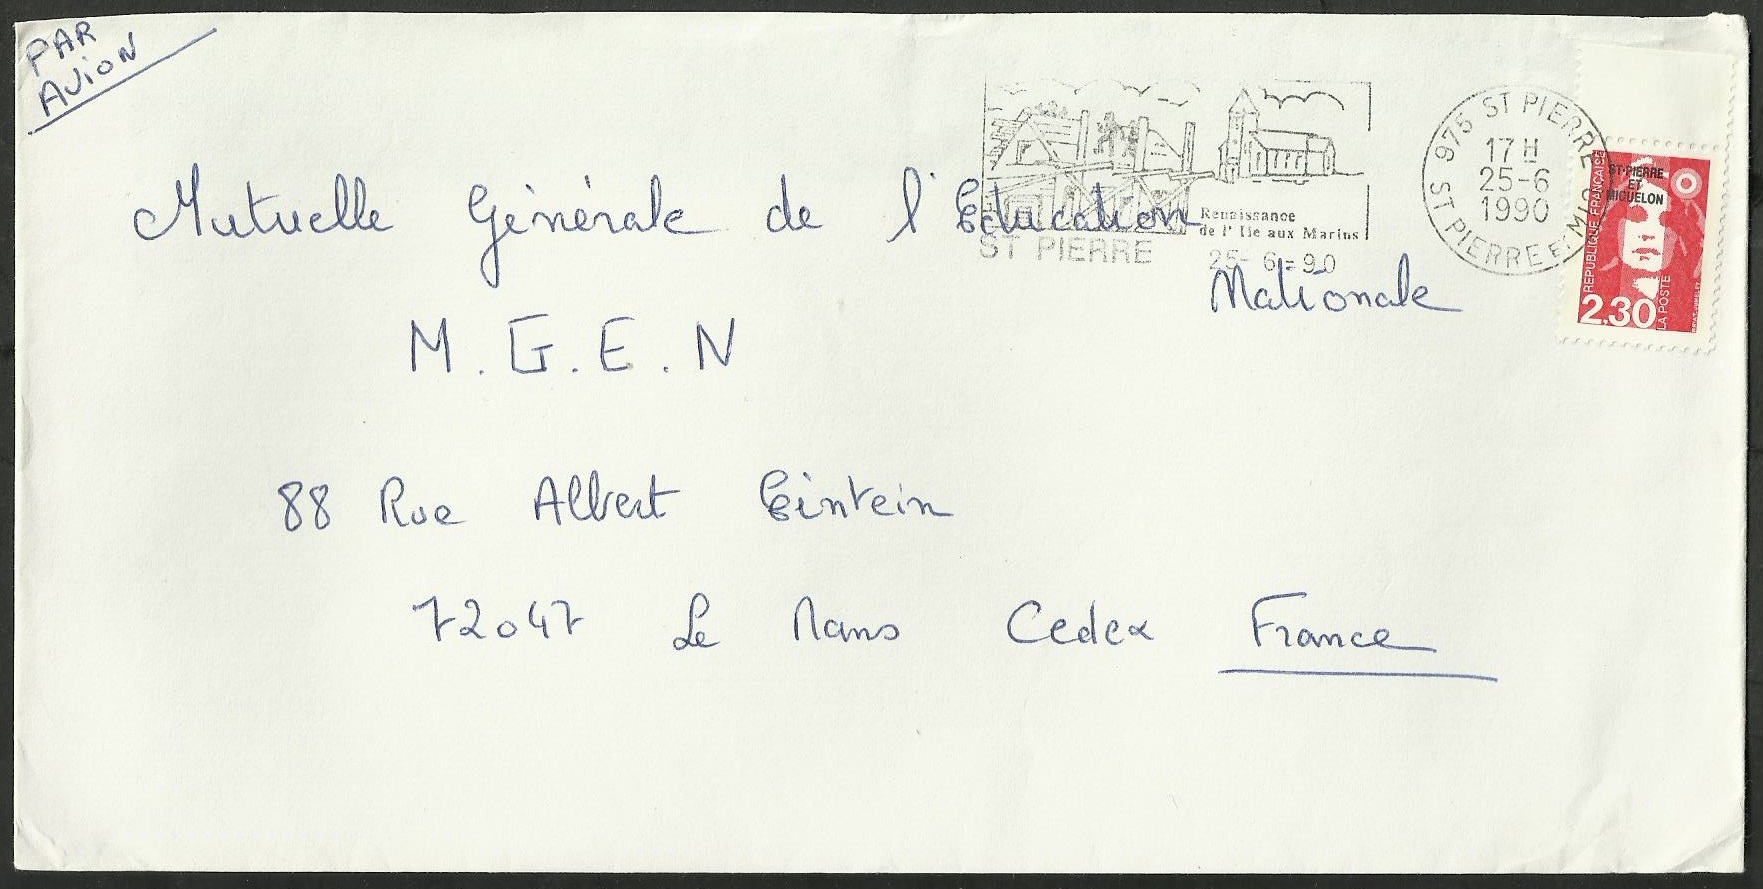 PAR
AVION
Mutuelle Générale de l'Education
Nationale
M.G.E.N
88 Rue Albert Eintein
72047 Le Mans Cedex France
Renaissance
de l'Ile aux Marins
ST PIERRE
25-6-90
975 ST PIERRE
17 H
25-6
1990
ST PIERRE ET MIQ
ST-PIERRE
ET
MIQUELON
REPUBLIQUE FRANÇAISE
2,30
LA POSTE